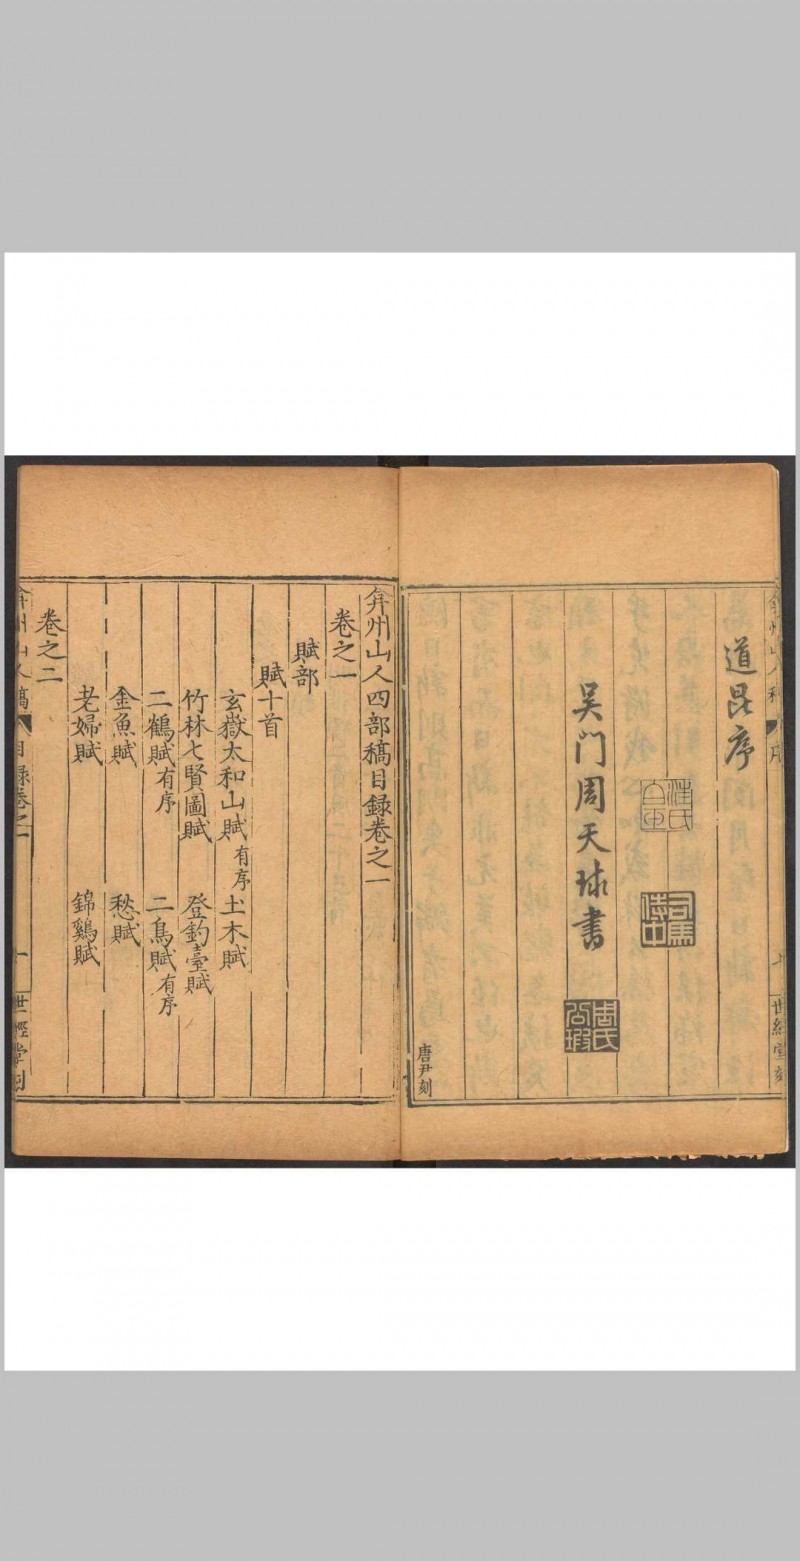 道昆序
汪氏
伯玉
司馬
侍中
吳门周天球書
周氏
公瑕
唐尹刻
世經堂刻
弇州山人四部稿目録卷之一
卷之一
賦部
賦十首
玄嶽太和山賦有序 土木賦
竹林七賢圖賦 登釣臺賦
二鶴賦有序 二鳥賦有序
金魚賦 愁賦
老婦賦 錦鷄賦
卷之二
弇州山人稿 目録卷之一 一 世經堂刻